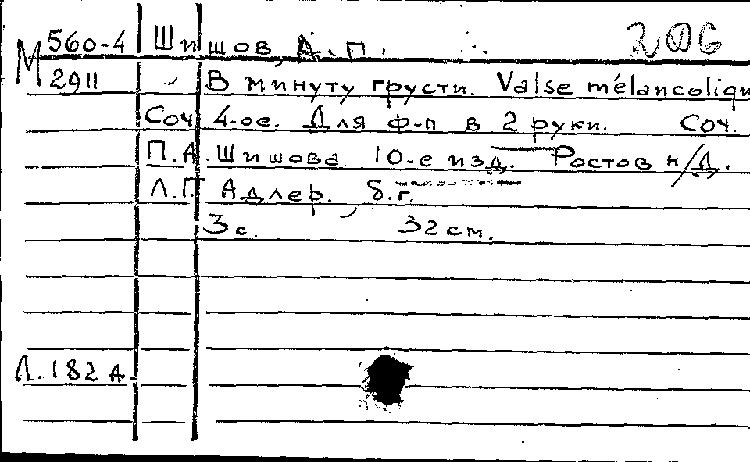 М 560-4 Шишов, А. П. 206
2911 В минуту грусти. Valse mélancoliqu
Соч 4-ое. Для ф-п в 2 руки. Соч.
П.А. Шишова 10-е изд. Ростов н/Д.
Л.П Адлер, б.г.
3 с. 32 см.
Л. 182 А.